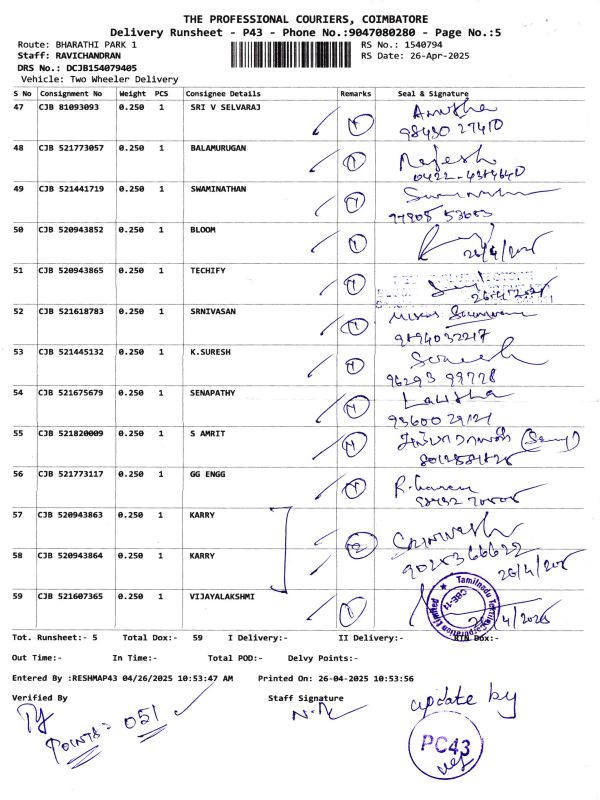 THE PROFESSIONAL COURIERS, COIMBATORE
Delivery Runsheet - P43 - Phone No.:9047080280 - Page No.:5
Route: BHARATHI PARK 1 RS No.: 1540794
Staff: RAVICHANDRAN RS Date: 26-Apr-2025
DRS No.: DCJB154079405
Vehicle: Two Wheeler Delivery
S No Consignment No Weight PCS Consignee Details Remarks Seal & Signature
47 CJB 81093093 0.250 1 SRI V SELVARAJ Anusha
98430 27410
48 CJB 521773057 0.250 1 BALAMURUGAN Rajesh
49 CJB 521441719 0.250 1 SWAMINATHAN
50 CJB 520943852 0.250 1 BLOOM
26/4/2025
51 CJB 520943865 0.250 1 TECHIFY
26/4/2025
52 CJB 521618783 0.250 1 SRNIVASAN
9894032217
53 CJB 521445132 0.250 1 K.SURESH Suresh
96293 99778
54 CJB 521675679 0.250 1 SENAPATHY Lalitha
93600 29121
55 CJB 521820009 0.250 1 S AMRIT
56 CJB 521773117 0.250 1 GG ENGG
57 CJB 520943863 0.250 1 KARRY
58 CJB 520943864 0.250 1 KARRY
26/4/2025
59 CJB 521607365 0.250 1 VIJAYALAKSHMI
26/4/2025
Tot. Runsheet:- 5 Total Dox:- 59 I Delivery:- II Delivery:- RTN Dox:-
Out Time:- In Time:- Total POD:- Delvy Points:-
Entered By :RESHMAP43 04/26/2025 10:53:47 AM Printed On: 26-04-2025 10:53:56
Verified By Staff Signature update by
POINTS = 051
PC43